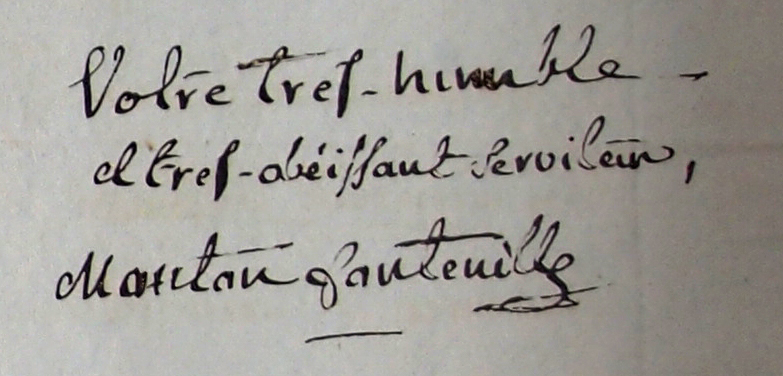 Votre tres-humble -
et tres-obéissant serviteur,
d'anteuille